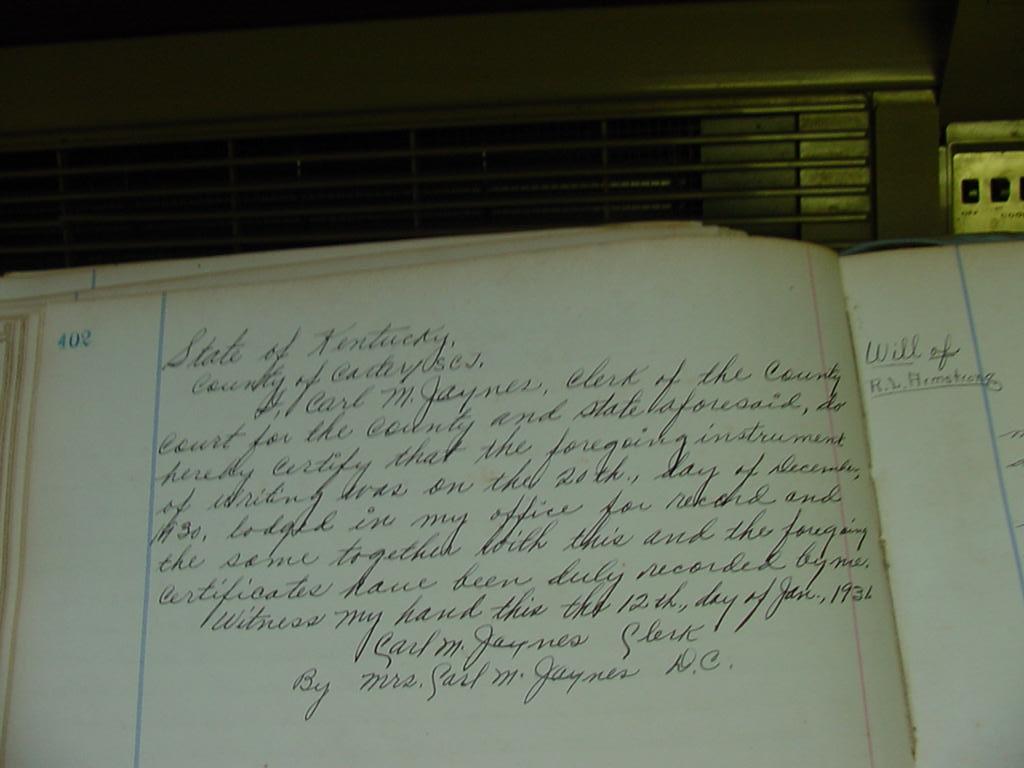 402
State of Kentucky,
County of Carter, SCt.
I, Carl M. Jaynes, Clerk of the County
court for the county and state aforesaid, do
hereby certify that the foregoing instrument
of writing was on the 20th., day of December,
1930, lodged in my office for record and
the same together with this and the foregoing
certificates have been duly recorded by me.
Witness my hand this the 12th., day of Jan., 1931
Carl M. Jaynes Clerk
By Mrs. Carl M. Jaynes D.C.
Will of
R.L. Armstrong
OFF